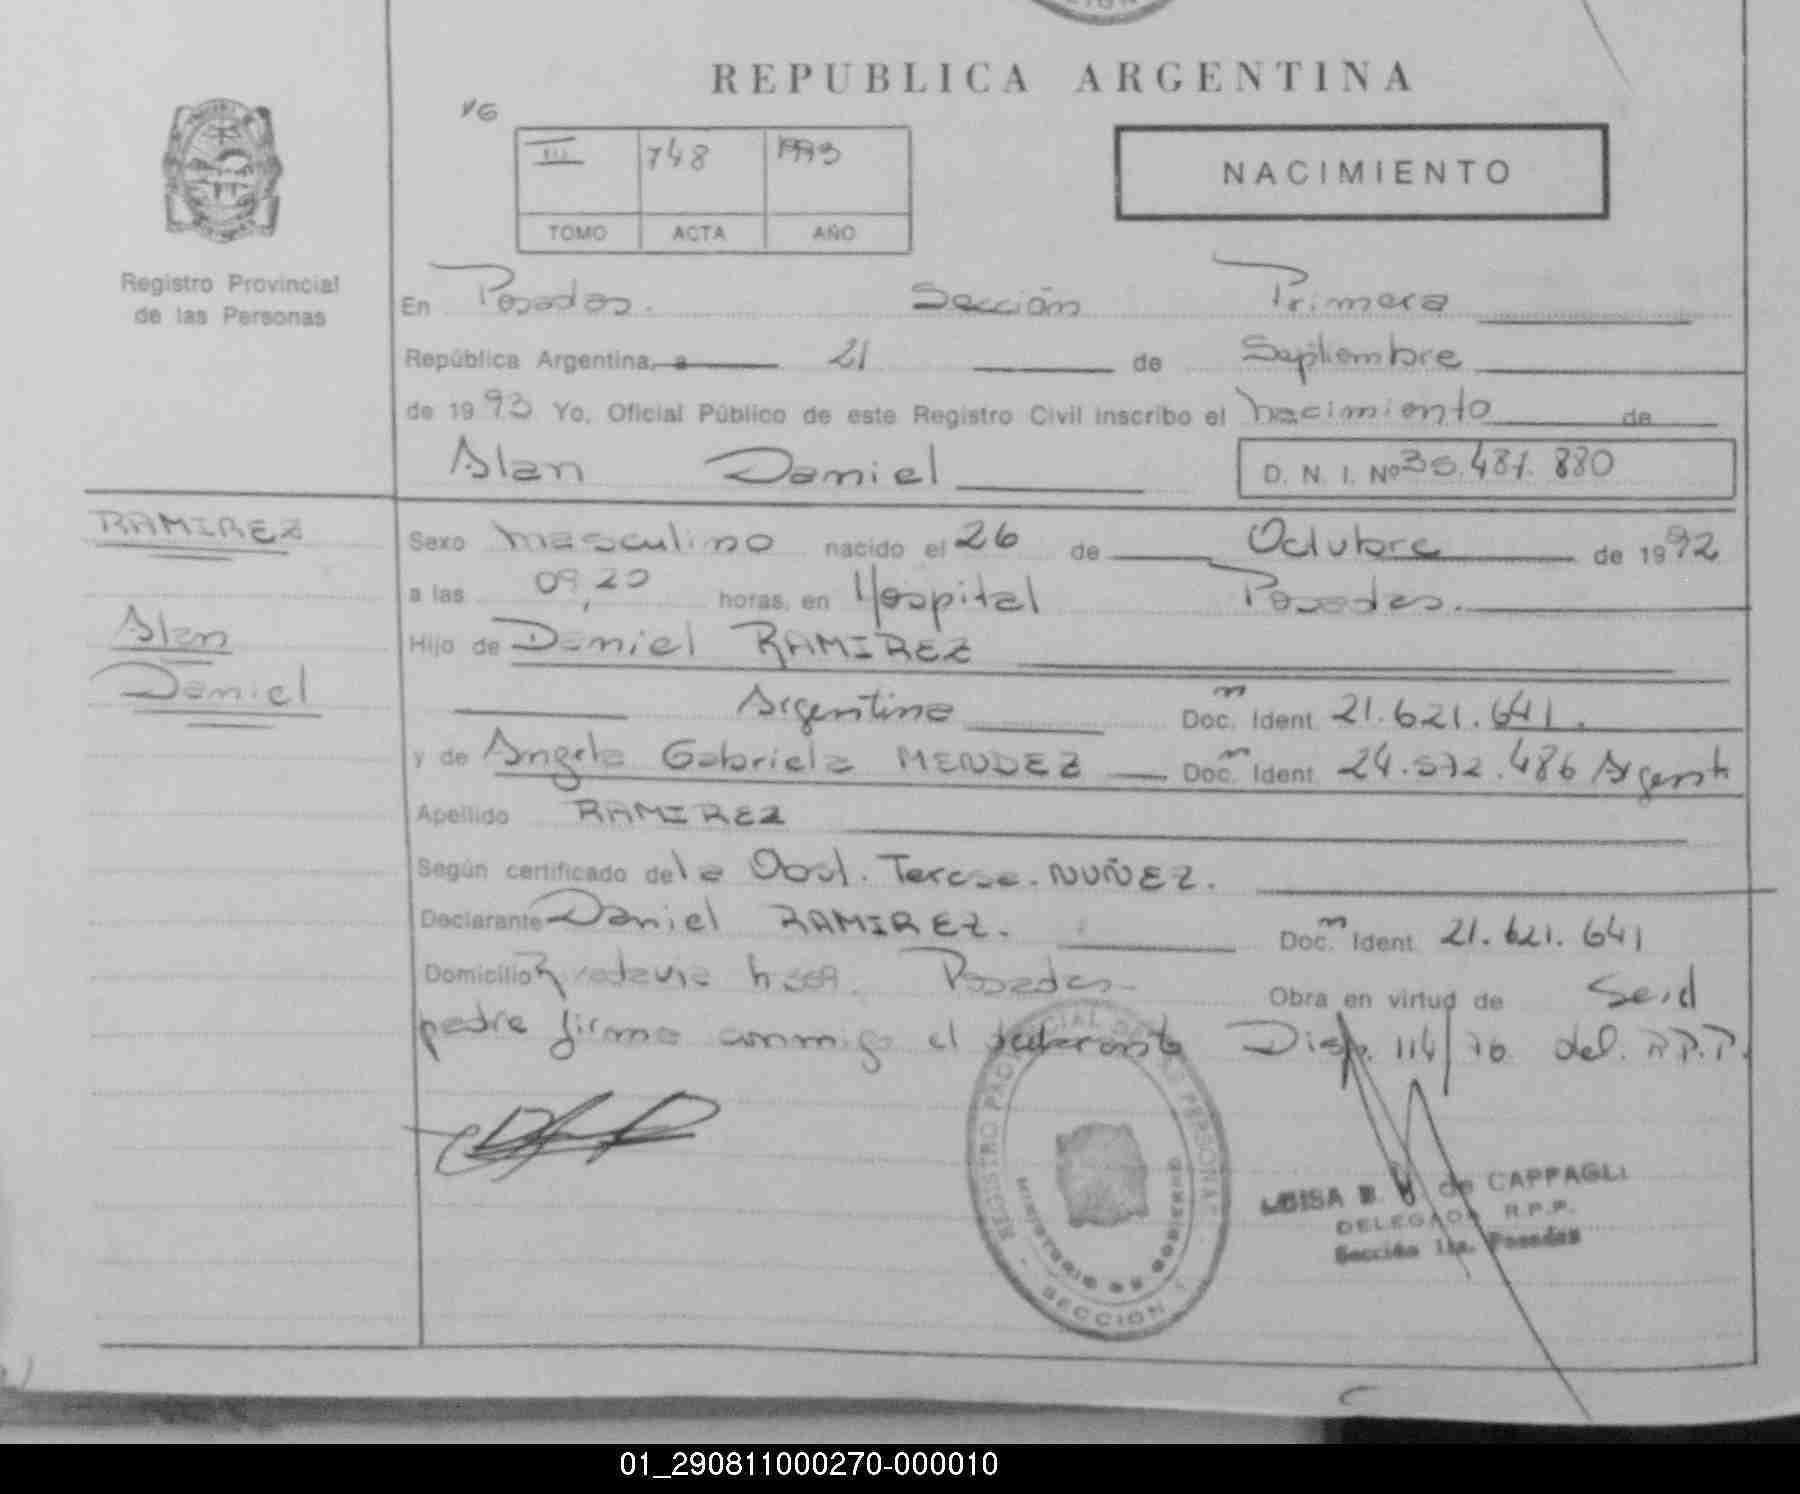 REPUBLICA ARGENTINA
VG
III 748 1993
TOMO ACTA AÑO
NACIMIENTO
Registro Provincial
de las Personas
En Posadas. Sección Primera
República Argentina, a 21 de Septiembre
de 1993 Yo, Oficial Público de este Registro Civil inscribo el nacimiento de
Alan Daniel D. N. I. Nº 36.481.880
RAMIREZ
Alan
Daniel
Sexo masculino nacido el 26 de Octubre de 1992
a las 09,20 horas, en Hospital Posadas.
Hijo de Daniel RAMIREZ
Argentino Doc. Ident 21.621.641.
y de Angela Gabriela MENDEZ Doc. Ident 24.572.486 Argent
Apellido RAMIREZ
Según certificado de la Obst. Teresa NUÑEZ.
Declarante Daniel RAMIREZ. Doc. Ident 21.621.641
Domicilio Rivadavia Posadas Obra en virtud de
padre firma conmigo el Disp. 114/76 del R.P.P.
REGISTRO PROVINCIAL DE LAS PERSONAS
MINISTERIO DE GOBIERNO
SECCION 1
de CAPPAGLI
DELEGADA R.P.P.
Sección 1ra. Posadas
01_290811000270-000010